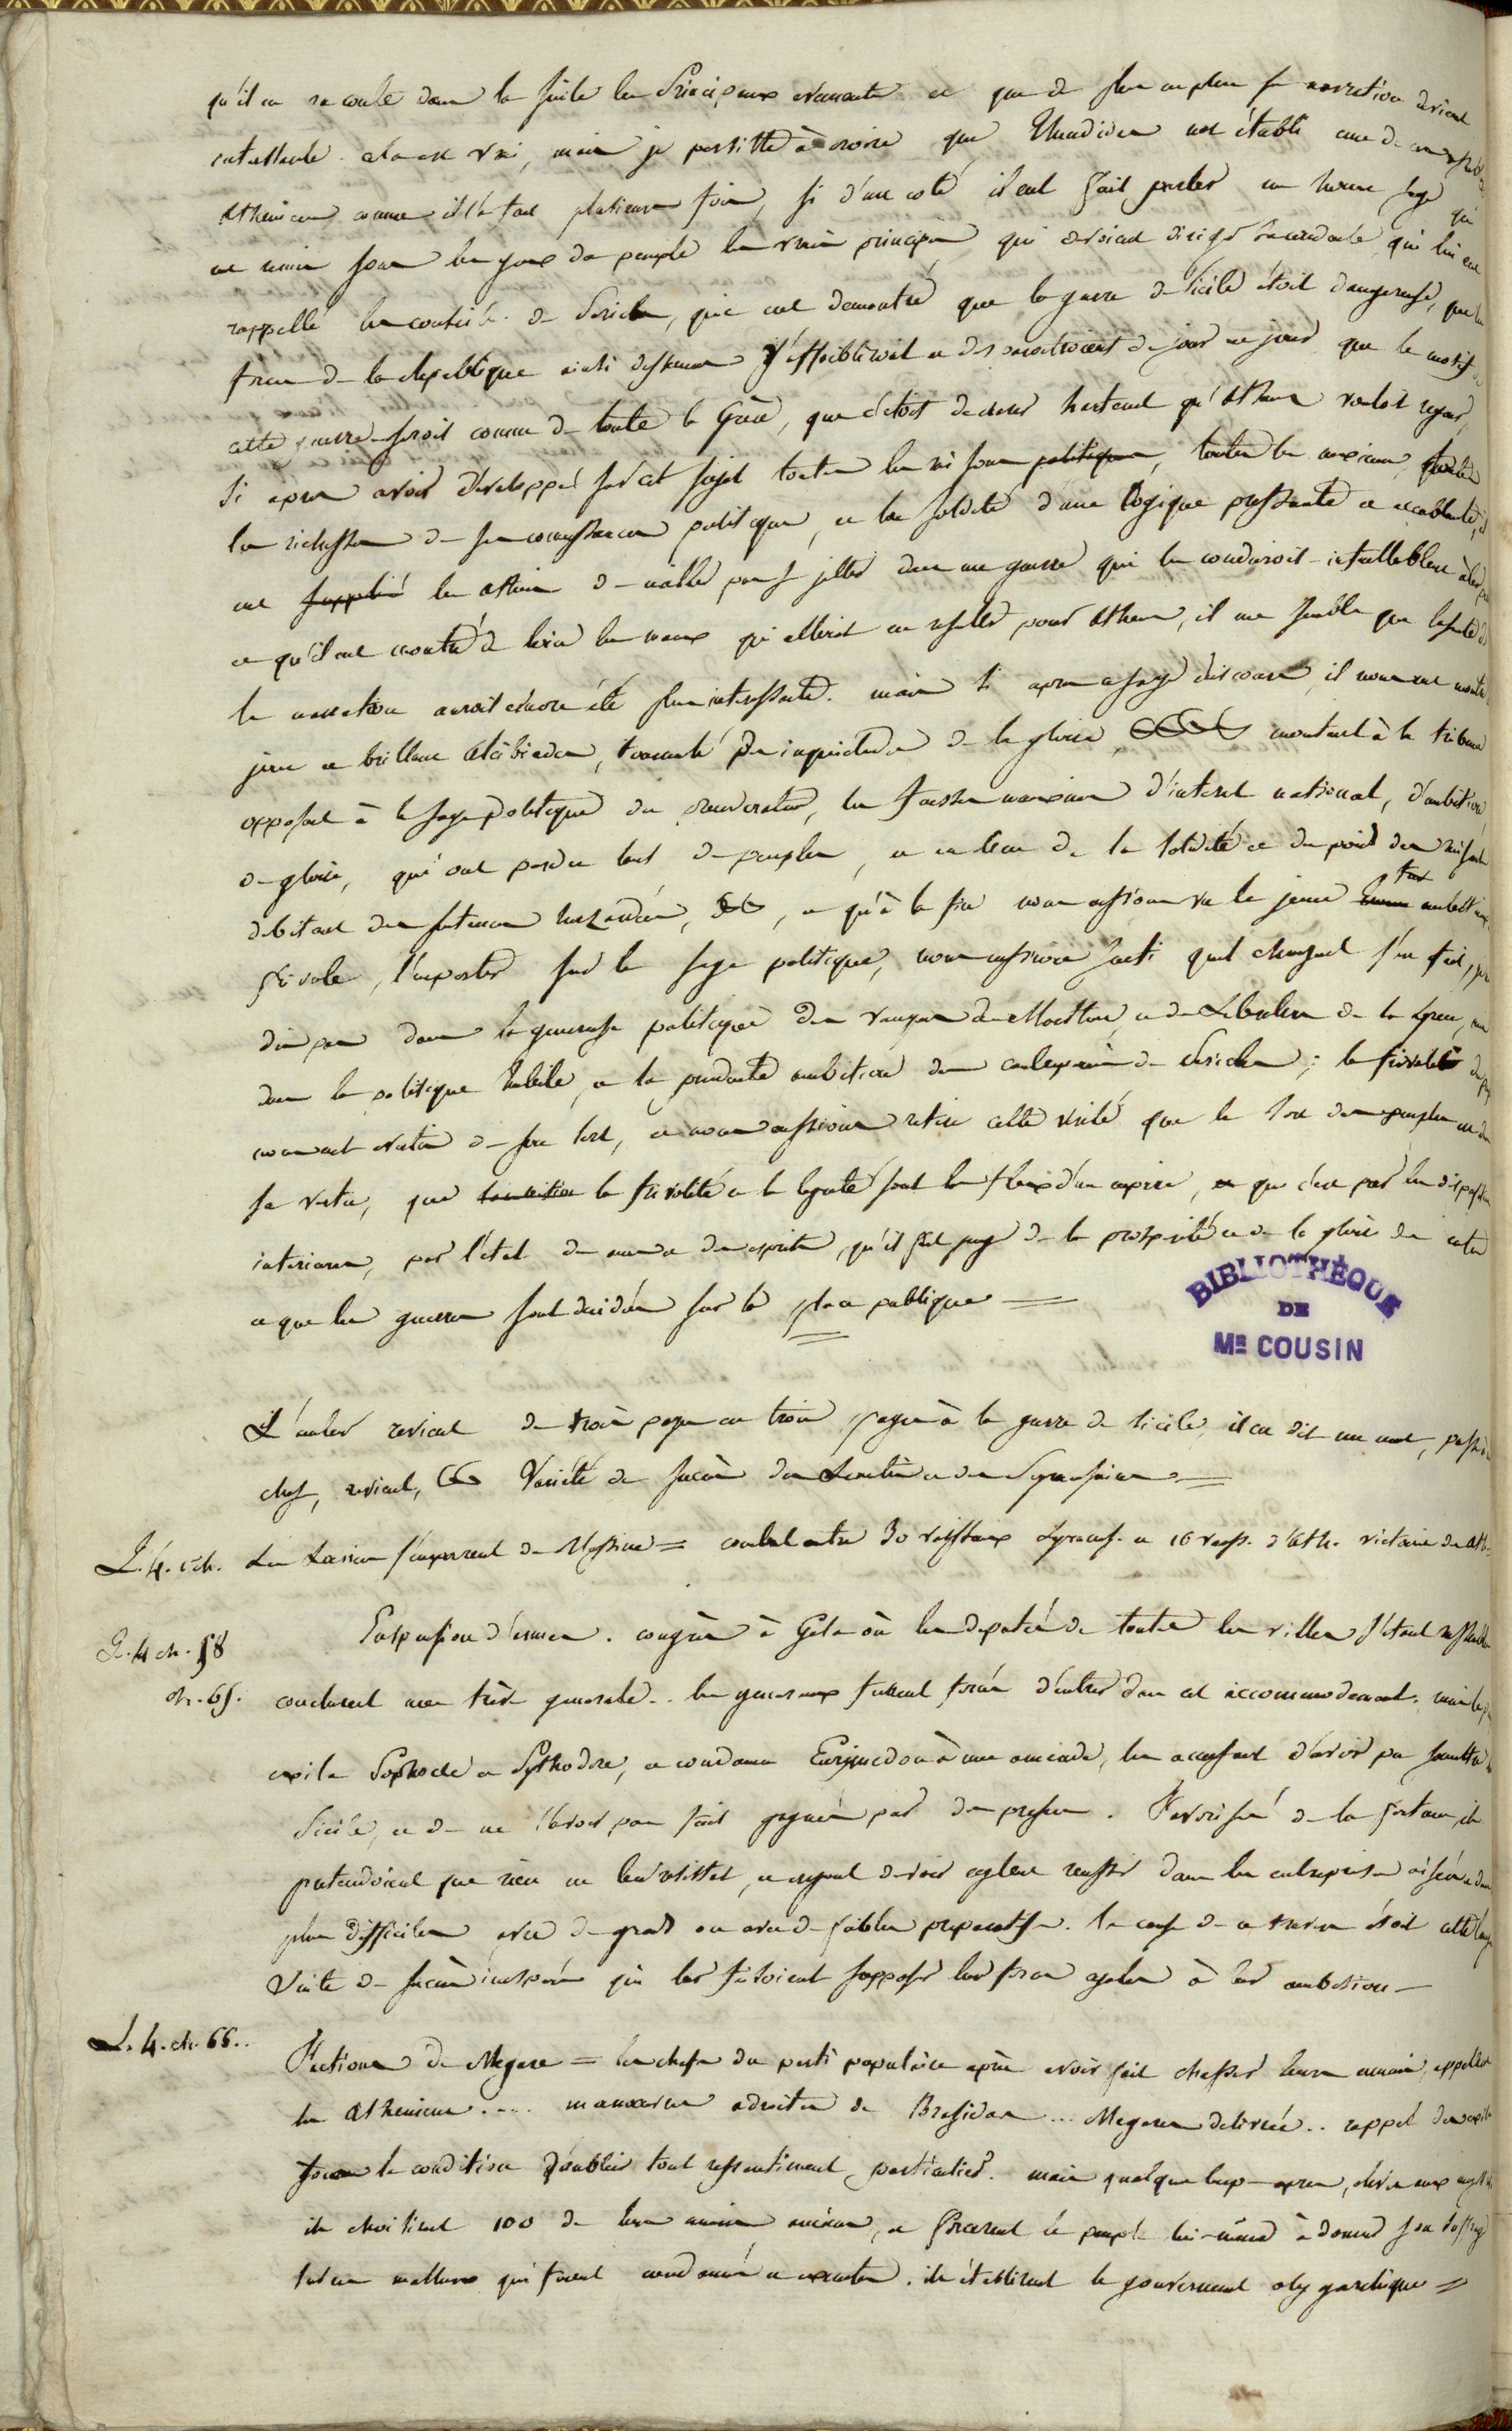 qu'il en raconte dans la suite les Principaux evenements et que de plus en plus sa narration devient
interessante. cela est vrai, mais je persiste à croire que Thucidides eut établi une de ces
Atheniens comme il l'a fait plusieurs fois, si d'un coté il eut fait parler un homme sage qui
eut remis sous les yeux du peuple les vrais principes qui devoient diriger sa conduite, qui lui eut
rappellé les conseils de Pericles, qui eut demontré que la guerre de Sicile étoit dangereuse, que les
forces de la Republique ainsi dispersées s'affoibliroient et disparoitroient de jour en jour que le motif de
cette guerre seroit connu de toute la Grece, que c'étoit declarer hautement qu'Athenes vouloit regner,
si apres avoir développé sur cet sujet toutes les raisons politiques, toutes les maximes, toutes
les richesses de ses connoissances politiques, et la solidité d'une logique pressante et accablante, il
eut supplié les Athen. de n'aller pas se jetter dans une guerre qui les conduiroit infailliblement à leur
et qu'il eut montré de loin les maux qui alloient en resulter pour Athenes, il me semble que la suite de
la narration auroit encore été plus interessante. mais si apres ce sage discours, il nous eut montré
jeune et brillant Alcibiades, tourmenté par inquietude de la gloire, montant à la tribune
opposant à la sage politique du moderateur, les fausses maximes d'interet national, d'ambition,
de gloire, qui ont perdu tant de peuples, et au lieu de la solidité et du poid des raisons
debitant des sentences hazardées, et qu'à la fin nous eussions vu le jeune fat ambitieux
frivole, l'emporter sur le sage politique, nous eussions senti quel changement s'en fait,
dis pas dans la genereuse politique des vainqueurs de Marathon, et des Liberateurs de la Grece, mais
dans la politique habile, et la prudente ambition des contemporains de Pericles; la frivolité du
nous eut avertis de son sort, et nous eussions retiré cette verité que le sort des peuples
sa vertu, que la frivolité et la legereté sont les fleaux d'un empire, et que c'est par les dispositions
interieures, par l'état des moeurs et des esprits, qu'il faut juger de la prosperité et de la gloire des états
et que les guerres sont decidées sur la place publique =
BIBLIOTHÈQUE
DE
MR COUSIN
L'auteur revient de trois pages en trois pages à la guerre de Sicile, il en dit un mot, passe
chef, revient, Variété de succès des Leontins et des Syracusains =
L. 4. ch. Les Locriens s'emparent de Messine = combat entre 30 vaisseaux Syracus. et 16 vaiss. d'Ath. victoire des Ath.
L. 4 ch. 58
ch. 65.
Suspension d'armes. congrès à Gela où les deputés de toutes les villes s'étant rassemblés
conclurent une trève generale.. les generaux furent forcés d'entrer dans cet accommodement. mais le peuple
exila Sophocle et Pythodore, et condamna Eurymedon à une amende, les accusant d'avoir pu soumettre la
Sicile, et de ne l'avoir pas fait gagnés par des presens. Favorisés de la fortune, ils
pretendoient que rien ne leur resistat, et croyoient devoir egalement reussir dans les entreprises aisées et dans
plus difficiles avec de grands ou avec de foibles preparatifs. la cause de ce travers étoit cette longue
Suite de succès inesperés qui leur faisoient supposer leurs forces egales à leur ambition —
L. 4. ch. 66..
Factions de Megare = les chefs du parti populaire après avoir fait chasser leurs ennemis, appellent
les Atheniens .... manoeuvres adroites de Brasidas ... Megare delivrée.. rappel des exilés
sous la condition d'oublier tout ressentiment particulier. mais quelque temps apres, élevés aux magistratures
ils choisirent 100 de leurs anciens ennemis, et forcerent le peuple lui-même à donner son suffrage
sur ces malheureux qui furent condamnés et executés. ils établirent le gouvernement olygarchique =